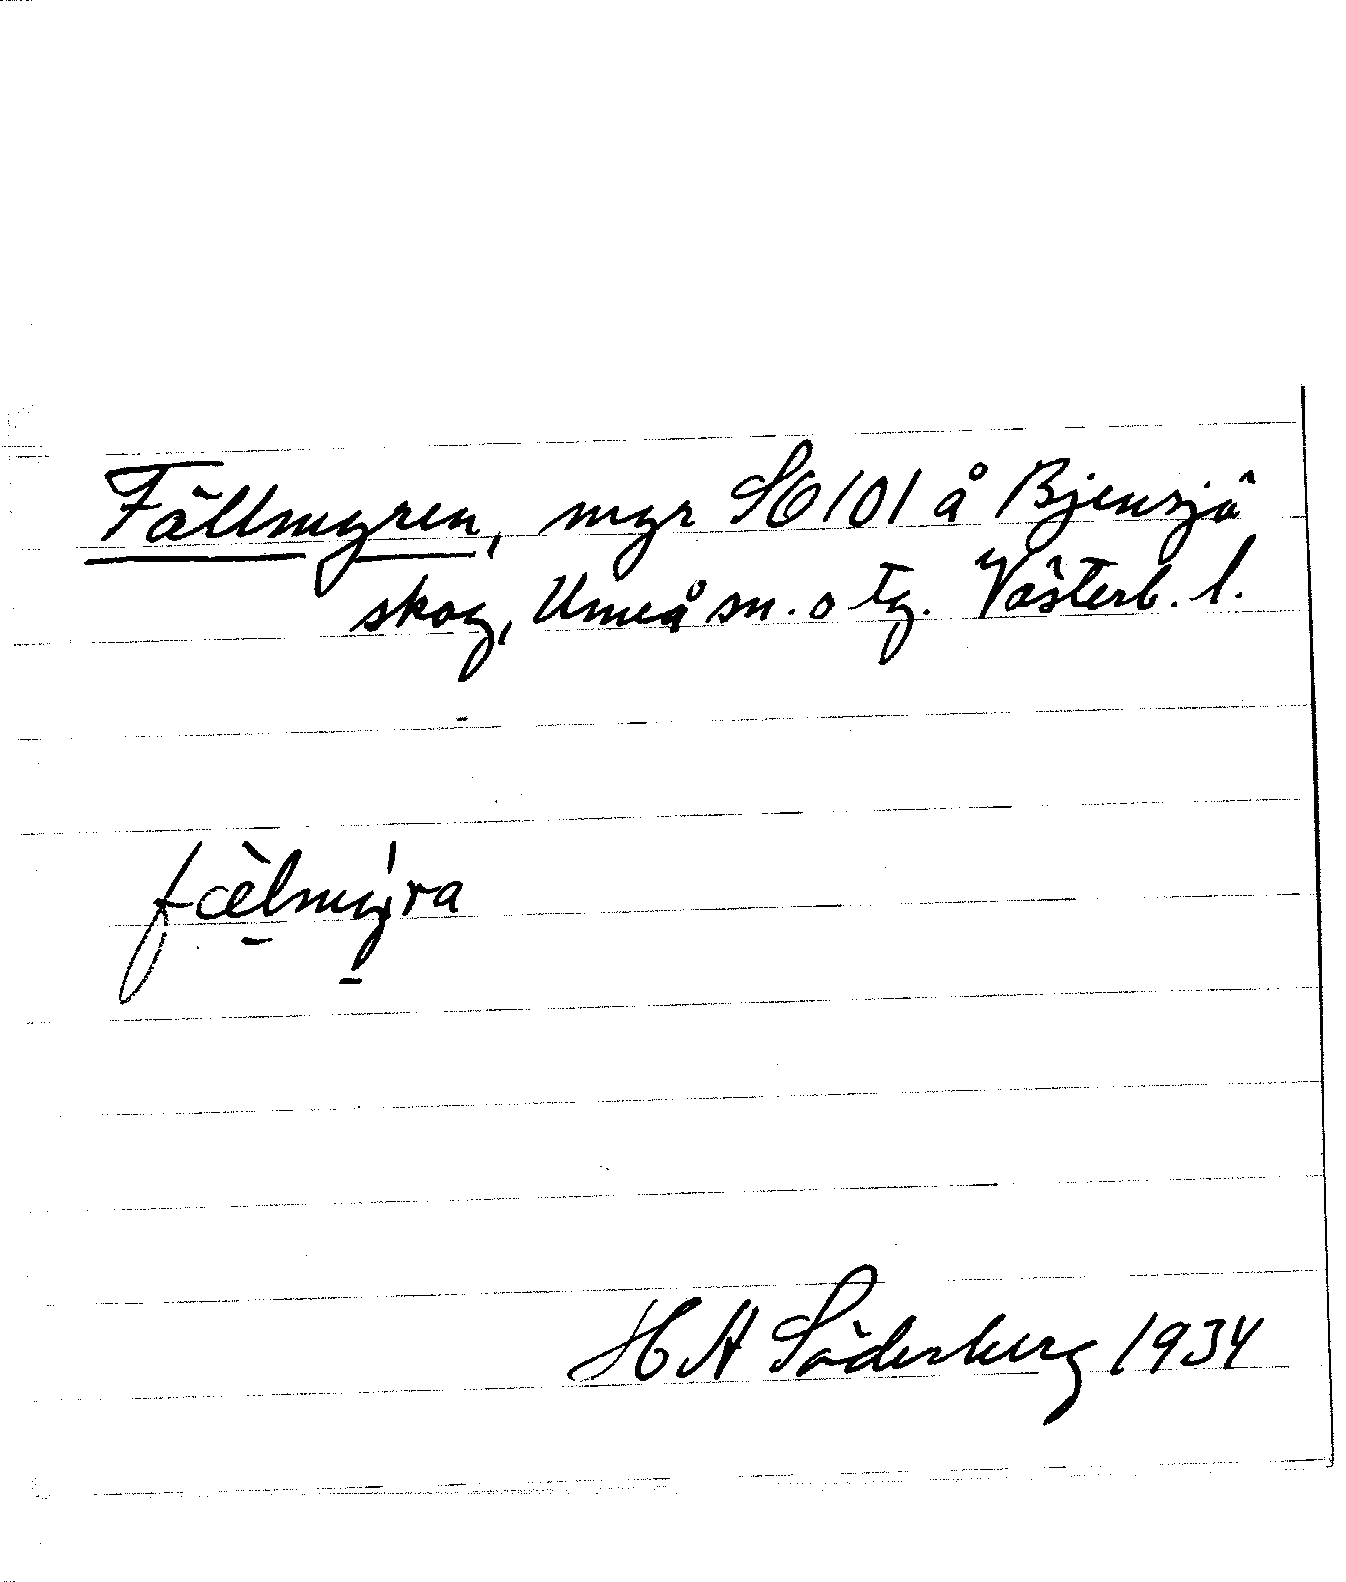 Fällmyren, myr SO101 å Bjensjö
skog, Umeå sn. o tg. Västerb. l.
fæ̀lmýra
H A Söderberg 1934